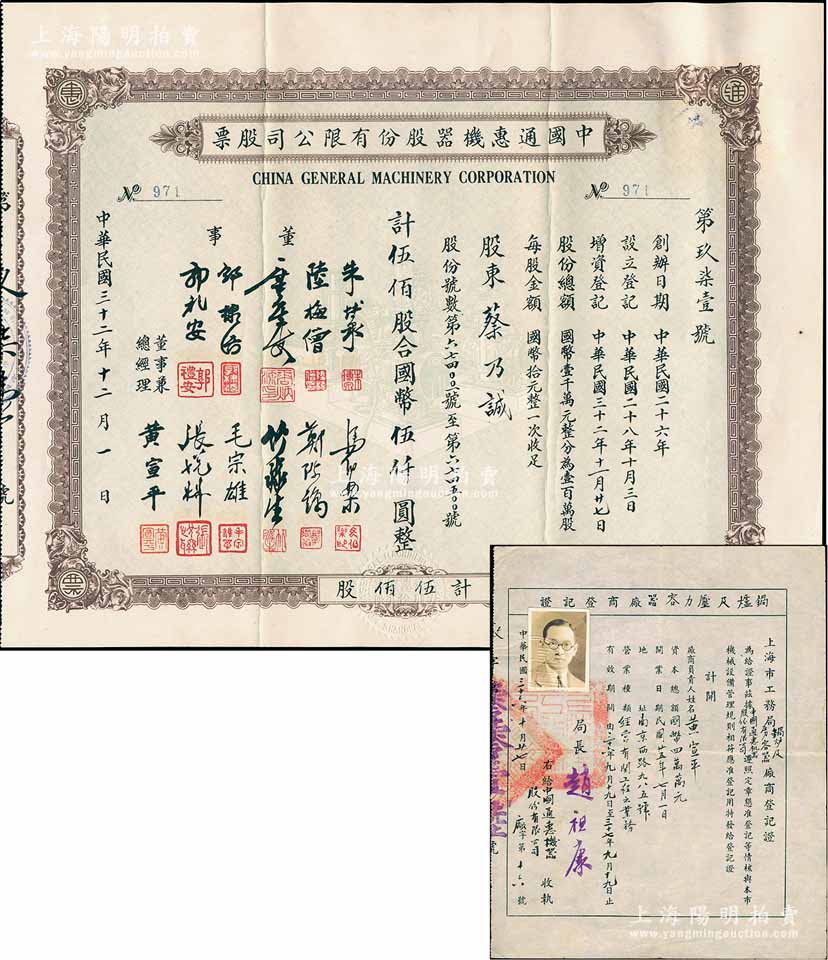 上海陽明拍賣
www.yangmingauction.com
惠
通
中國通惠機器股份有限公司股票
CHINA GENERAL MACHINERY CORPORATION
No 971
No 971
第玖柒壹號
創辦日期 中華民國二十六年
設立登記 中華民國二十八年十月三日
增資登記 中華民國三十二年十一月廿七日
股份總額 國幣壹千萬元整分為壹百萬股
每股金額 國幣拾元整一次收足
股東 蔡乃誠
股份號數第六七四〇〇號至第六七四五〇〇號
計伍佰股合國幣伍仟圓整
董事
陸梅僧
郭礼安
毛宗雄
董事兼總經理 黃宣平
中華民國三十二年十二月一日
計伍佰股
票
上海陽明拍賣
www.yangmingauction.com
鍋爐及壓力容器廠商登記證
上海市工務局鍋炉及容器廠商登記證
為給證事茲據中國通惠机器股份有限公司遵照定章懇准登記等情核與本市
機械設備管理規則相符應准登記用特發給登記證
計開
廠商負責人姓名 黃宣平
資本總額 國幣四萬萬元
開業日期 民國廿五年七月一日
地址 南京西路九八五號
營業種類 經营有関工程之業務
有效期間 由三六年九月十九日至三十七年九月十九日止
局長 趙祖康
右給中國通惠機器股份有限公司 收執
中華民國三十六年十月廿七日
廠字第十六號
上海陽明拍賣
www.yangmingauction.com